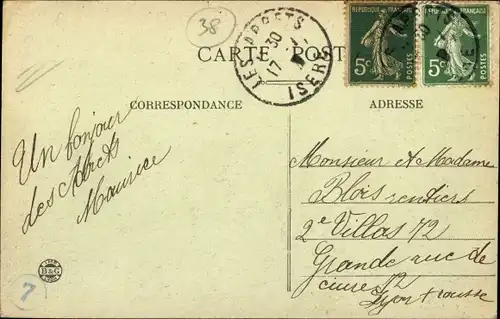 38
CARTE POST
LES ABRETS
17 30
ISERE
REPUBLIQUE FRANÇAISE
5c POSTES
5c POSTES
CORRESPONDANCE
ADRESSE
Un bonjour
des Abrets
Maurice
Monsieur et Madame
Blois rentiers
2e Villas 72
Grande rue de
72
Lyon + rousse
B&G
7